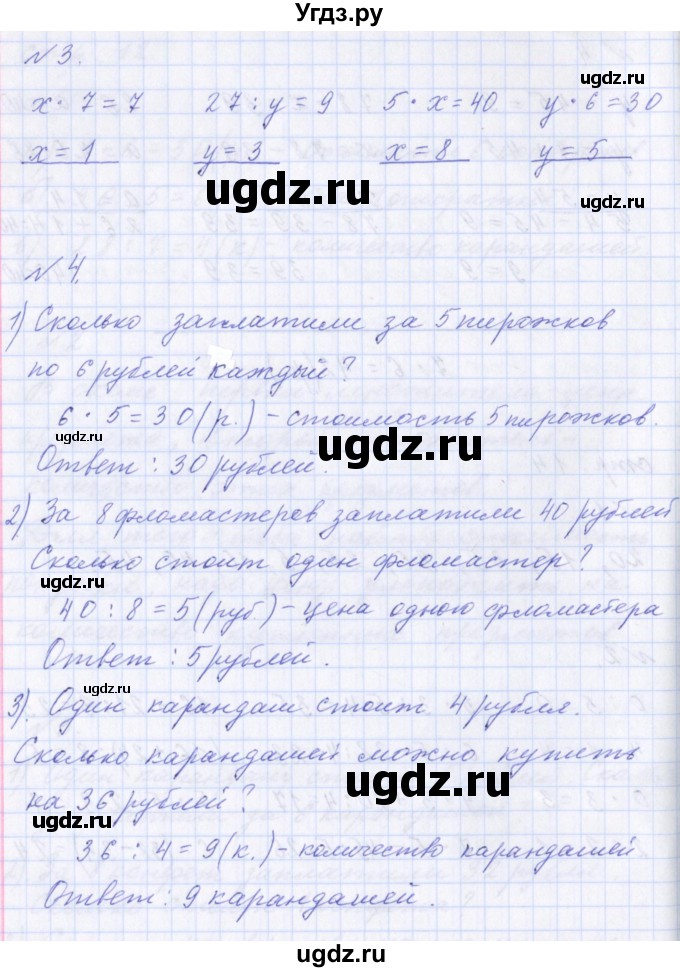 Угдз.ру
№3.
x · 7 = 7   27 : y = 9   5 · x = 40   y · 6 = 30
x = 1   y = 3   x = 8   y = 5
№4.
1) Сколько заплатили за 5 пирожков
по 6 рублей каждый?
6 · 5 = 30 (р.) – стоимость 5 пирожков.
Ответ : 30 рублей.
2) За 8 фломастеров заплатили 40 рублей
Сколько стоит один фломастер?
40 : 8 = 5 (руб.) – цена одного фломастера
Ответ : 5 рублей.
3). Один карандаш стоит 4 рубля.
Сколько карандашей можно купить
на 36 рублей?
36 : 4 = 9 (к.) – количество карандашей
Ответ : 9 карандашей.
ugdz.ru
ugdz.ru
ugdz.ru
ugdz.ru
ugdz.ru
ugdz.ru
ugdz.ru
ugdz.ru
ugdz.ru
ugdz.ru
ugdz.ru
ugdz.ru